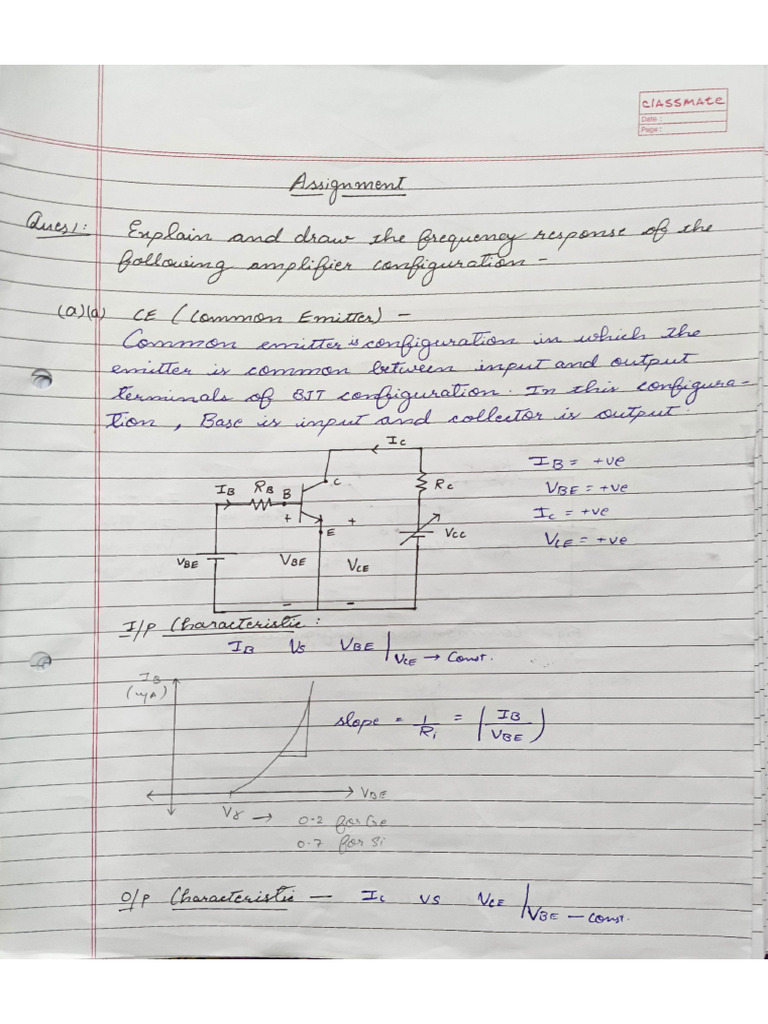 classmate
Date :
Page :
Assignment
Ques1: Explain and draw the frequency response of the
following amplifier configuration -
(a)(a) CE (Common Emitter) -
Common emitter is configuration in which the
emitter is common between input and output
terminals of BJT configuration. In this configura-
tion, Base is input and collector is output.
IC
IB RB B C RC
IB = +ve
VBE = +ve
IC = +ve
VCE = +ve
+ E + VCC
VBE VBE VCE
- -
I/P Characteristic :
IB Vs VBE | VCE → Const.
IB
(μA)
slope = 1/Ri = (IB/VBE)
VBE
Vγ → 0.2 for Ge
0.7 for Si
O/P Characteristic — IC VS VCE | VBE - const.